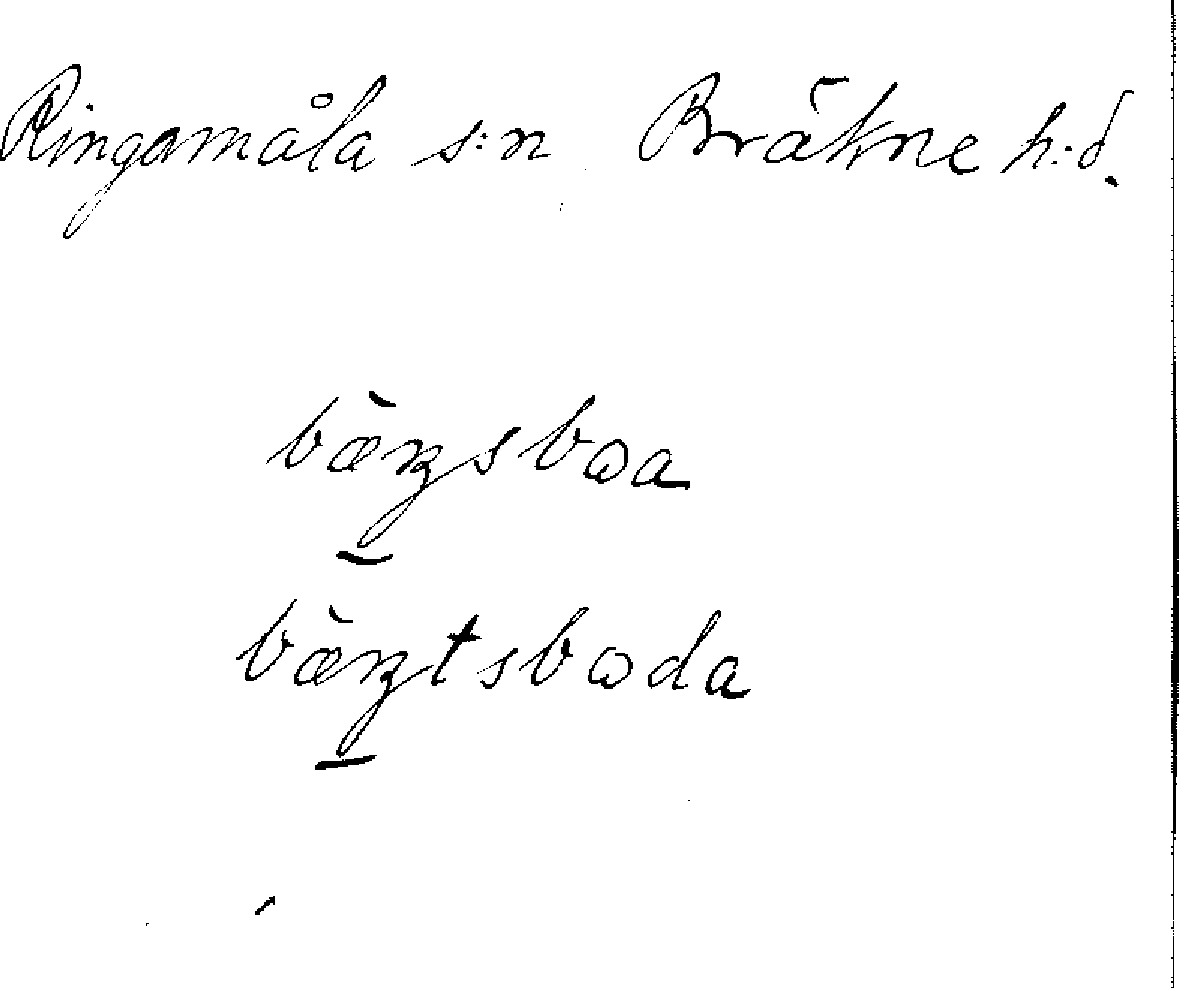 Ringamåla s:n Bräkne h:d.
bæ̀ʀsboa
bæ̀ʀtsboda